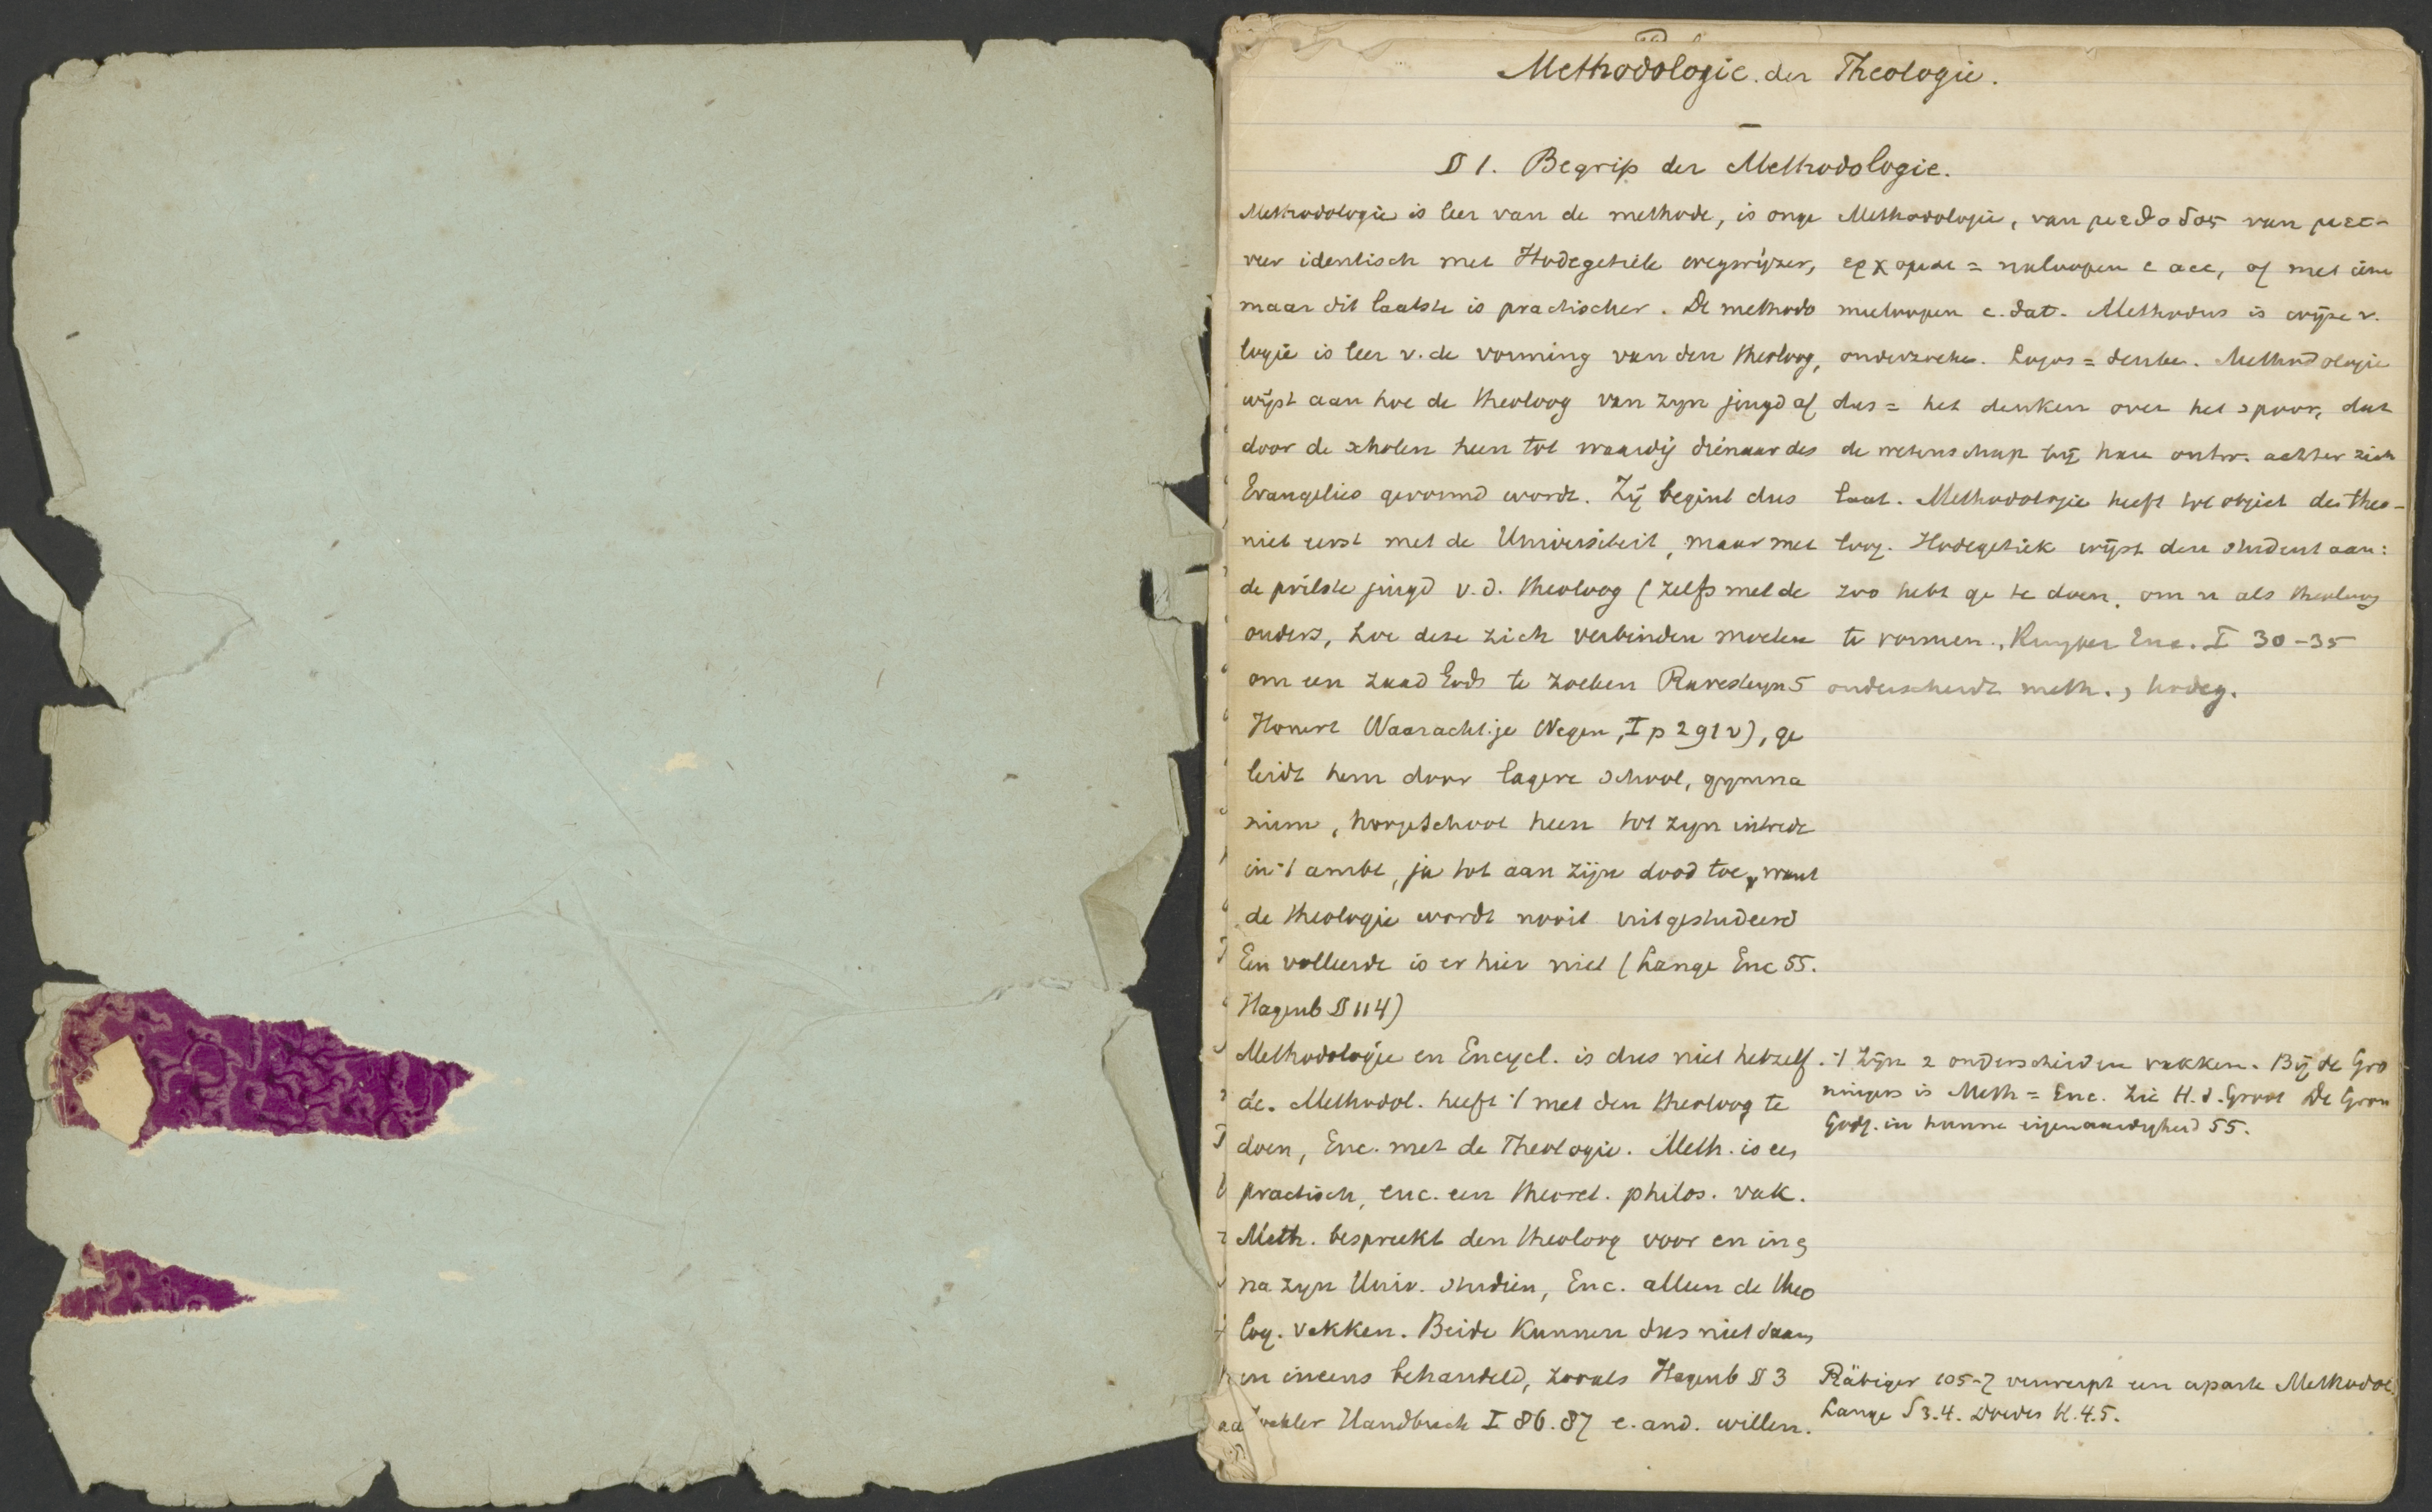 Methodologie der Theologie.
§ 1. Begrip der Methodologie.
Methodologie is leer van de methode, is onge
veer identisch met Hodegetiek wegwijzer,
maar dit laatste is practischer. De methodo
logie is leer v. de vorming van den theoloog,
wijst aan hoe de theoloog van zijn jeugd af
door de scholen heen tot waardig dienaar des
Evangelies gevormd wordt. Zij begint dus
niet eerst met de Universiteit, maar met
de prilste jeugd v.d. theoloog (zelfs met de
ouders, hoe deze zich verbinden moeten
om een zaad Gods te zoeken Ravesteyn 5
Honert Waarachtige Wegen, I p 291 v), ge
leidt hem door lagere school, gymna
sium, hoogeschool heen tot zijn intrede
in 't ambt, ja tot aan zijn dood toe, want
de theologie wordt nooit uitgestudeerd
Een volleerde is er hier niet (Lange Enc 55.
Hagenb § 114)
Methodologie en Encycl. is dus niet hetzelf
de. Methodol. heeft 't met den theoloog te
doen, Enc. met de Theologie. Meth. is een
practisch, enc. een theoret. philos. vak.
Meth. bespreekt den theoloog voor en in
na zijn Univ. studien, Enc. alleen de theo
log. vakken. Beide kunnen dus niet
en ineens behandeld, zooals Hagenb § 3
Handbuch I 86.87 e. and. willen.
Methodologie, van μεθοδος van μετ-
ερχομαι = naloopen c acc, of met iem
meeloopen c. dat. Methodus is wijze v.
onderzoeken. Logos = denken. Methodologie
dus = het denken over het spoor, dat
de wetenschap bij haar ontw. achter zich
laat. Methodologie heeft tot object den theo-
loog. Hodegetiek wijst den student aan:
zoo hebt ge te doen, om u als theoloog
te vormen. Kuyper Enc. I 30-35
onderscheidt meth. , hodeg.
't Zijn 2 onderscheiden vakken. Bij de Gro
ningers is Meth = Enc. Zie H. d. Groot De Gron
Godg. in hunne eigenaardigheid 55.
Räbiger 105-7 verwerpt een aparte Methodol.
Lange § 3.4. Doedes K. 4.5.